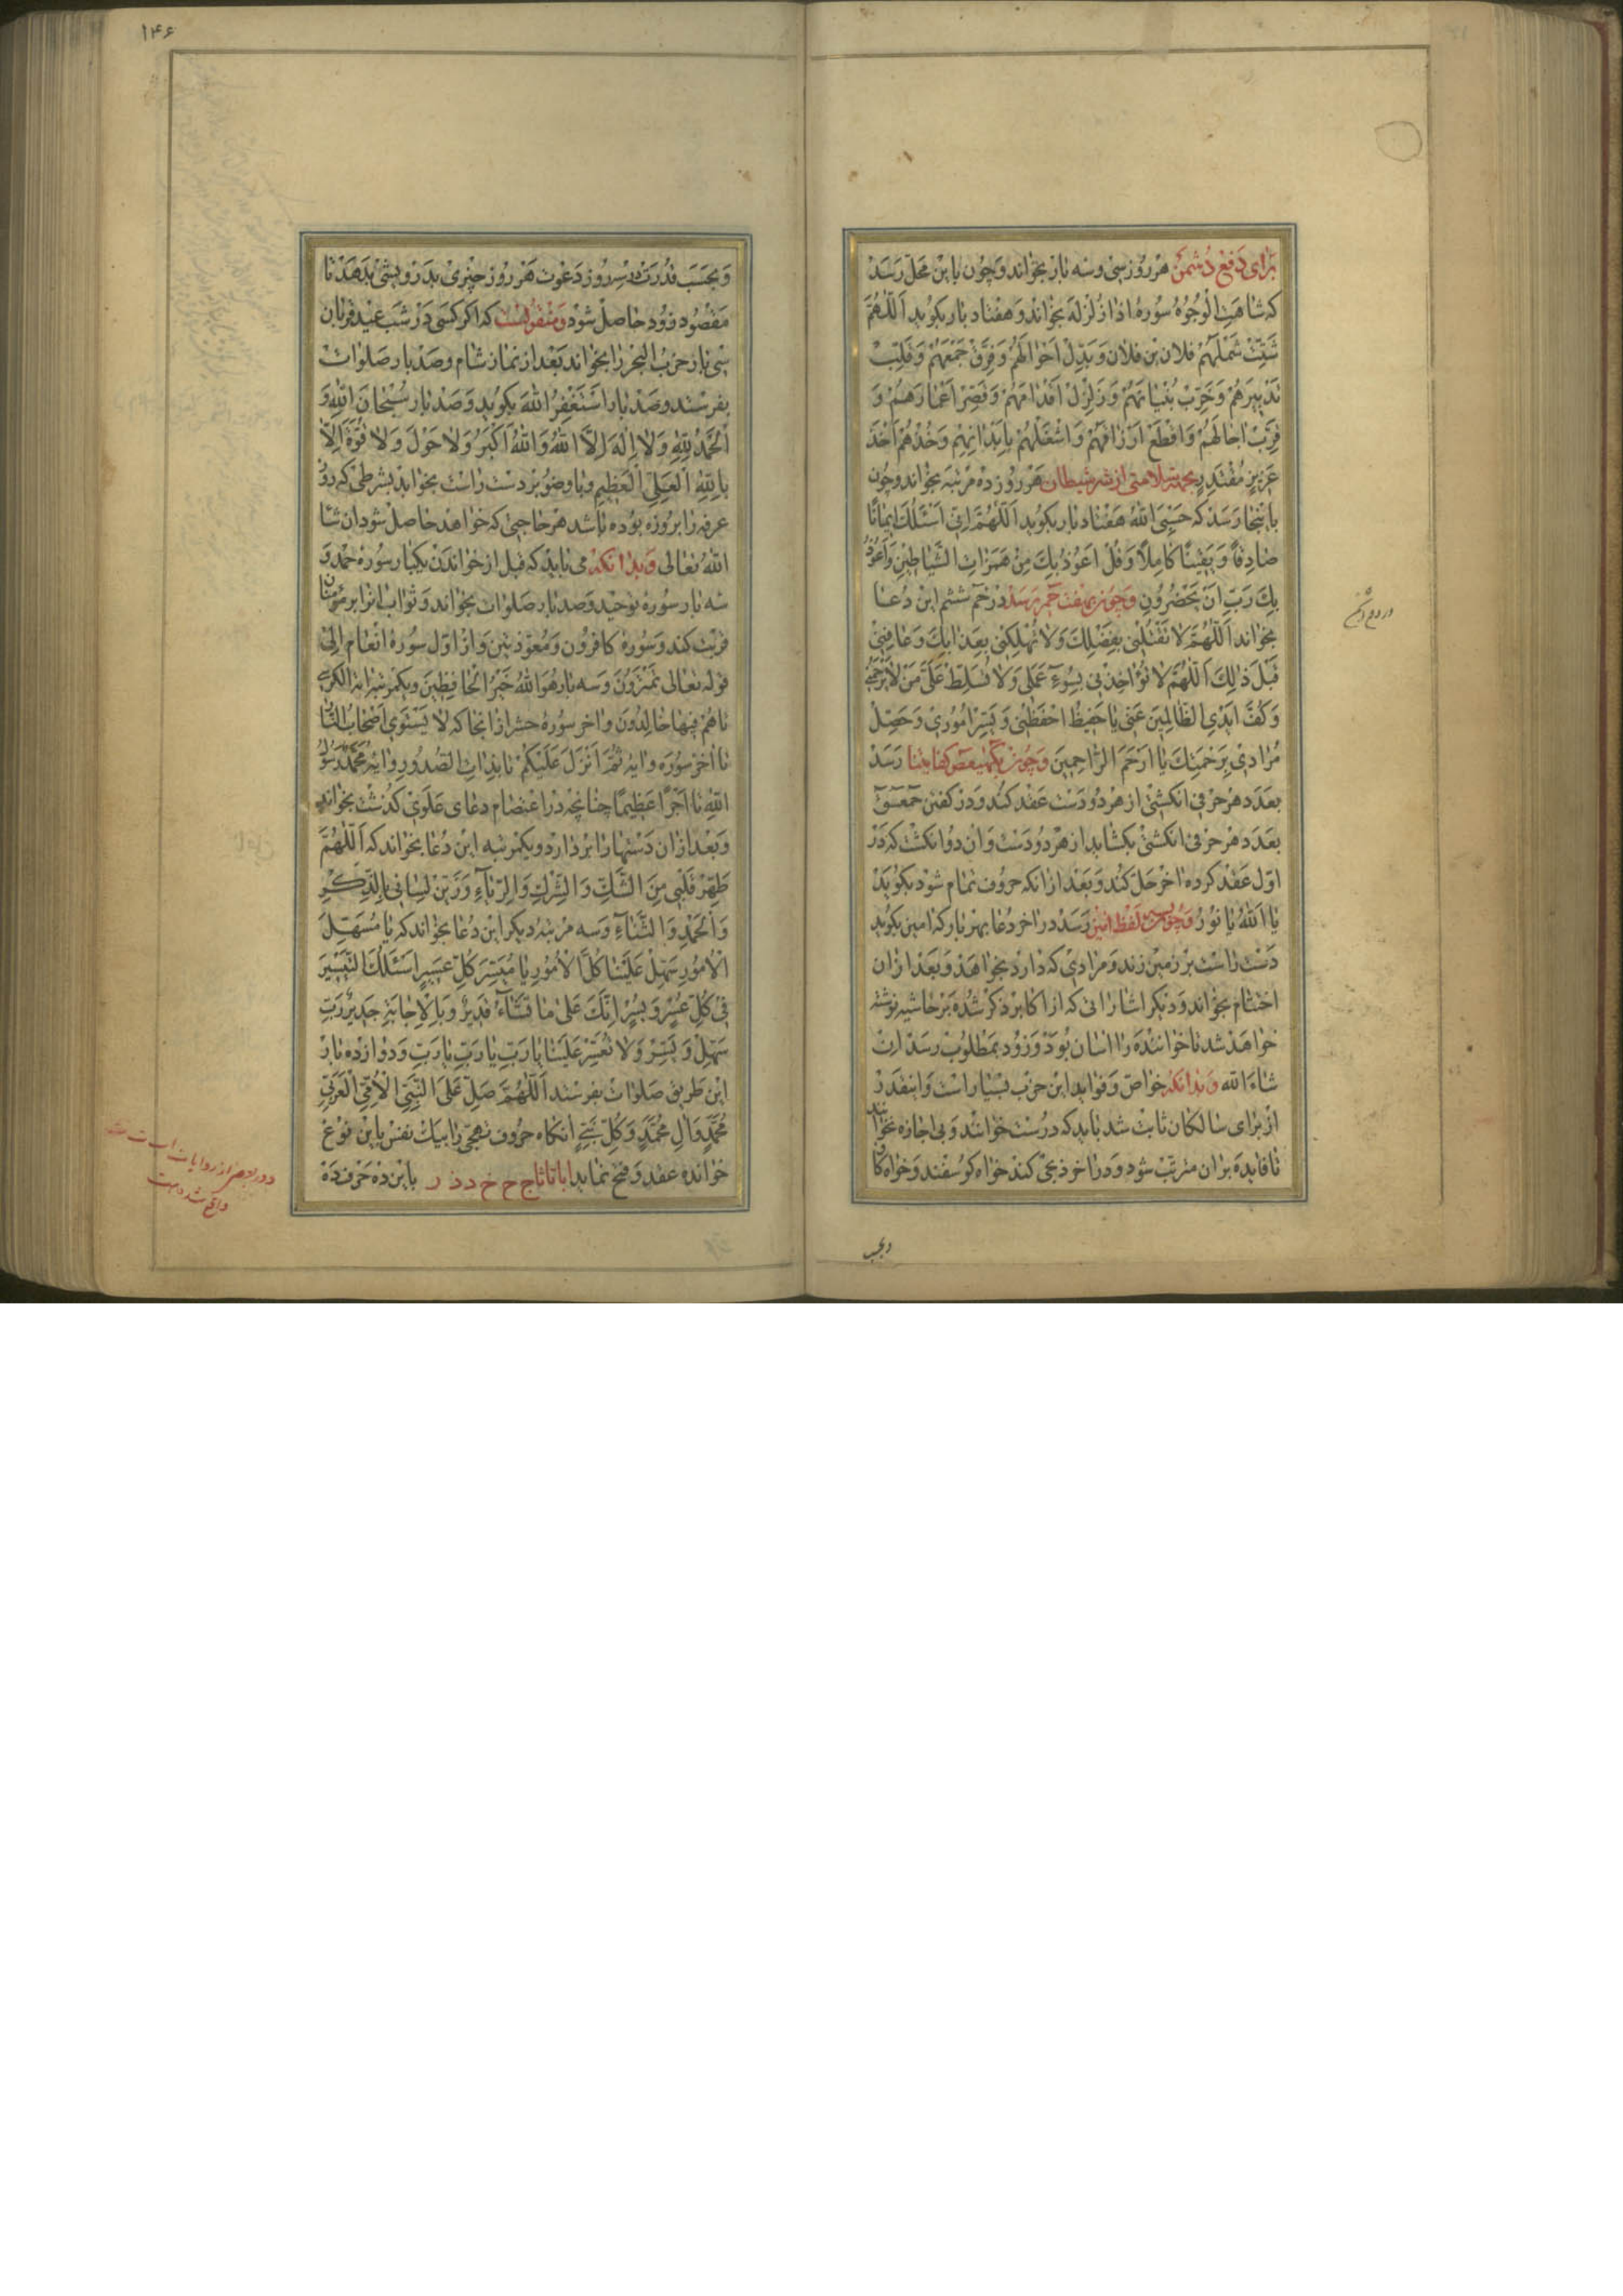 برای دفع دشمن هر روز سی و سه بار بخواند و چون باین محل رسد
که شاهت الوجوه سوره اذا زلزله بخواند و هفتاد بار بگوید اَللّهُمَّ
شَتِّتْ شَمْلَهُمْ فلان بن فلان وَبَدِّلْ اَحْوالَهُمْ وَفَرِّقْ جَمْعَهُمْ وَقَلِّبْ
تَدْبِیرَهُمْ وَخَرِّبْ بُنْیانَهُمْ وَزَلْزِلْ اَقْدامَهُمْ وَقَصِّرْ اَعْمارَهُمْ وَ
قَرِّبْ اجالَهُمْ وَاقْطَعْ اَرْزاقَهُمْ وَاشْغَلْهُمْ بِاَبْدانِهِمْ وَخُذْهُمْ اَخْذَ
عَزِیزٍ مُقْتَدِرٍ بجهة سلامتی از شر شیطان هر روز ده مرتبه بخواند و چون
باینجا رسد که حَسْبِیَ اللّهُ هفتاد بار بگوید اَللّهُمَّ اِنّی اَسْئَلُكَ ایمانًا
صادِقاً وَیَقینًا کامِلاً وَقُلْ اَعُوذُ بِكَ مِنْ هَمَزاتِ الشَّیاطینِ وَاَعُوذُ
بِكَ رَبِّ اَنْ یَحْضُرُونِ و چون بهفت حم برسد در حم ششم این دعا
بخواند اَللّهُمَّ لا تَقْتُلْنی بِغَضَبِكَ وَلا تُهْلِكْنی بِعَذابِكَ وَعافِنی
قَبْلَ ذلِكَ اَللّهُمَّ لا تُؤاخِذْنی بِسُوءِ عَمَلی وَلا تُسَلِّطْ عَلَیَّ مَنْ لا یَرْحَمُنی
وَكُفَّ اَیْدِی الظّالِمینَ عَنّی یا حَفیظُ احْفَظْنی وَیَسِّرْ اُمُوری وَحَصِّلْ
مُرادی بِرَحْمَتِكَ یا اَرْحَمَ الرّاحِمینَ و چون بکهیعص کفایتنا رسد
بعدد هر حرفی انگشتی از هر دو دست عقد کند و در گفتن حمعسق
بعدد هر حرفی انگشتی بگشاید از هر دو دست و ان دو انگشت که در
اول عقد کرده اخر حل کند و بعد ازانکه حروف تمام شود بگوید
یا اَللّهُ یا نُورُ و چون به لفظ امین رسد در اخر دعا بهر بار که امین بگوید
دست راست بر زمین زند و مرادی که دارد بخواهد و بعد ازان
اختتام بخواند و دیگر اشاراتی که از اکابر ذکر شده بر حاشیه نوشته
خواهد شد تا خواننده را اسان بود و زود بمطلوب رسد ان
شاء الله و بدانکه خواص و فواید این حزب بسیار است و اینقدر
از برای سالکان ثابت شد باید که درست خوانند و بی اجازه نخوانند
تا فایده بران مترتب شود و در اخر ذبحی کند خواه گوسفند و خواه گاو
و بحسب
۱۴۶
و بحسب قدرت در سر روز دعوت هر روز چیزی بدرویشی بدهد تا
مقصود زود حاصل شود و منقولست که اگر کسی در شب عید قربان
سی بار حزب البحر را بخواند بعد از نماز شام و صد بار صلوات
بفرستد و صد بار اَسْتَغْفِرُ اللّهَ بگوید و صد بار سُبْحانَ اللّهِ وَ
اَلْحَمْدُ لِلّهِ وَلا اِلهَ اِلاَّ اللّهُ وَاللّهُ اَكْبَرُ وَلا حَوْلَ وَلا قُوَّةَ اِلاّ
بِاللّهِ الْعَلِیِّ الْعَظیمِ و با وضو بر دست راست بخوابد بشرطی که روز
عرفه را بروزه بوده باشد هر حاجتی که خواهد حاصل شود ان شا
الله تعالی و بدانکه می باید که قبل از خواندن یکبار سوره حمد و
سه بار سوره توحید و صد بار صلوات بخواند و ثواب انرا بر مؤمنان
قربت کند و سوره کافرون و معوذتین و از اول سوره انعام الی
قوله تعالی تَمْتَرُونَ و سه بار هُوَ اللّهُ خَیْرُ الْحافِظینَ و یکمرتبه ایة الکرسی
تا هُمْ فیها خالِدُونَ و اخر سوره حشر از انجا که لا یَسْتَوی اَصْحابُ النّا
تا اخر سوره و ایه ثُمَّ اَنْزَلَ عَلَیْكُمْ تا بِذاتِ الصُّدُورِ و ایه مُحَمَّدٌ رَسُولُ
اللّهِ تا اَجْرًا عَظیمًا چنانچه در اعتصام دعای علوی گذشت بخواند
و بعد ازان دستها را بردارد و یکمرتبه این دعا بخواند که اَللّهُمَّ
طَهِّرْ قَلْبی مِنَ الشَّكِّ وَالشِّرْكِ وَالرِّیاءِ وَزَیِّنْ لِسانی بِالذِّكْرِ
وَالْحَمْدِ وَالثَّناءِ و سه مرتبه دیگر این دعا بخواند که یا مُسَهِّلَ
الْاُمُورِ سَهِّلْ عَلَیْنا كُلَّ الْاُمُورِ یا مُیَسِّرَ كُلِّ عَسیرٍ اَسْئَلُكَ التَّیْسیرَ
فی كُلِّ عُسْرٍ وَیُسْرٍ اِنَّكَ عَلی ما تَشاءُ قَدیرٌ وَبِالْاِجابَةِ جَدیرٌ رَبِّ
سَهِّلْ وَیَسِّرْ وَلا تُعَسِّرْ عَلَیْنا یا رَبِّ یا رَبِّ یا رَبِّ و دوازده بار
این طریق صلوات بفرستد اَللّهُمَّ صَلِّ عَلَی النَّبِیِّ الْاُمِّیِّ الْعَرَبِیِّ
مُحَمَّدٍ وَالِ مُحَمَّدٍ وَكُلِّ نَبِیٍّ انگاه حروف تهجی را بیك نفس باین نوع
خوانده عقد و فتح نماید ا با تا ثا ج ح خ د ذ ر باین ده حرف ده